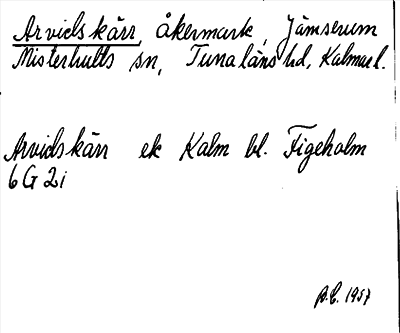 Arvidskärr, åkermark, Jämserum
Misterhults sn, Tunaläns hd, Kalmar l.
Arvidskärr ek Kalm bl. Figeholm
6 G 2 i
1957